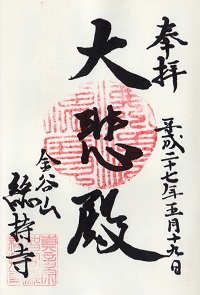 奉拝
平成二十七年五月十九日
大悲殿
金谷山
総持寺